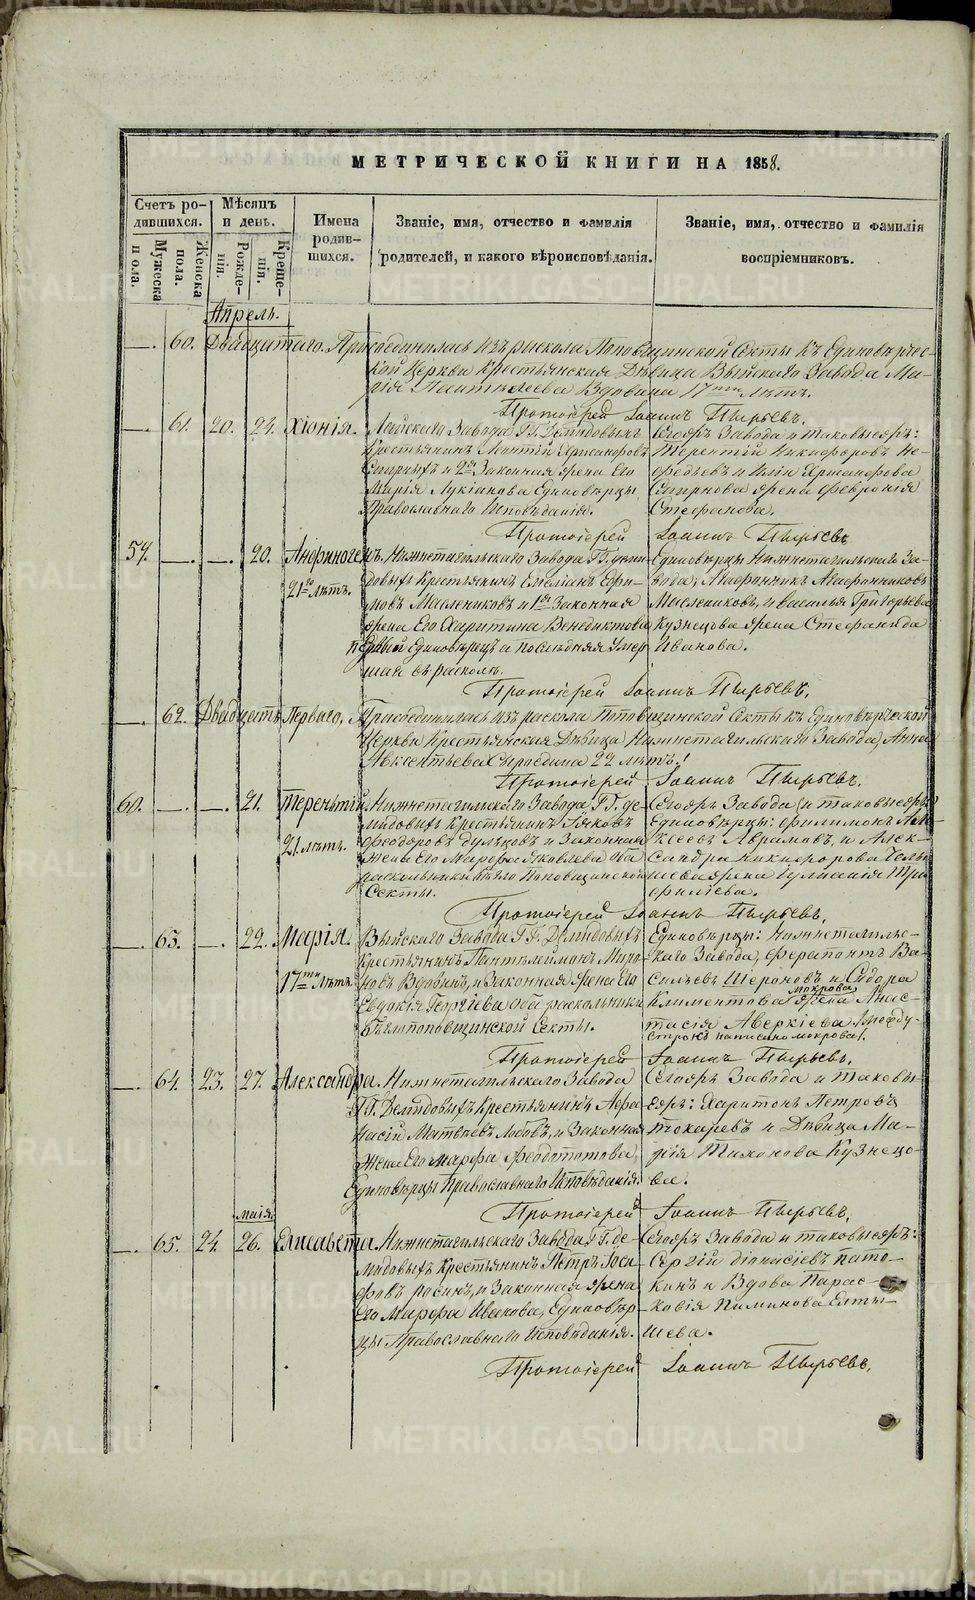 МЕТРИЧЕСКОЙ КНИГИ НА 1858.
Счетъ ро-
дившихся.
Мѣсяцъ
и день.
Имена
родив-
шихся.
Званіе, имя, отчество и фамилія
родителей, и какого вѣроисповѣданія.
Званіе, имя, отчество и фамилія
воспріемниковъ.
Мужеска
пола.
Женска
пола.
Рожде-
нія.
Креще-
нія.
Апрель.
—. 60. Двадцатаго. Присоединилась изъ раскола Поповщинской Секты къ Единовѣрчес-
кой Церкви Крестьянская Дѣвица Выйскаго Завода Ма-
рія Вдовина 17ти лѣтъ.
Протоіерей Іоаннъ Пырьевъ.
—. 61. 20. 24. Хіонія.
Лайскаго Завода ГГ. Демидовыхъ
Крестьянинъ Хрисанфовъ
и 2я Законная жена Его
Марія Лукіанова Единовѣрцы
Православнаго Исповѣданія.
Сегожъ Завода и таковыежъ:
Терентій Никифоровъ Не-
федьевъ и Иліи Хрисанфова
Смирнова жена Февронія
Стефанова.
Протоіерей Іоаннъ Пырьевъ
59. —. —. 20. Анфиноге-
21го лѣтъ.
нъ. Нижнетагильскаго Завода ГГ. Деми-
довыхъ Крестьянинъ Емеліанъ Ефи-
мовъ Маслениковъ и 1я Законная
жена Его Харитина Венедиктова
первый Единовѣрецъ а послѣдняя умер-
шая въ расколѣ.
Единовѣрцы Нижнетагильскаго За-
вода, Агафонникъ Агафонниковъ
Маслениковъ, и Василья Григорьева
Кузнецова жена Стефанида
Иванова.
Протоіерей Іоаннъ Пырьевъ.
—. 62. Двадцать Перваго. Присоединилась изъ раскола Поповщинской Секты къ Единовѣрческой
Церкви Крестьянская Дѣвица Нижнетагильскаго Завода, Анна
Авксентьева Сыроедина 22 лѣтъ.
Протоіерей Іоаннъ Пырьевъ.
60. —. —. 21. Терентій
21. лѣтъ.
Нижнетагильскаго Завода ГГ. Де-
мидовыхъ Крестьянинъ Іяковъ
Феодоровъ и Законная
Жена Его Марфа Яковлева Оба
раскольники Бѣгло Поповщинской
Секты.
Сегожъ Завода и таковыежъ
Единовѣрцы: Филимонъ Але-
ксеевъ Аврамовъ, и Алек-
сандра Никифорова
жена Іуліанія Три-
филіева.
Протоіерей Іоаннъ Пырьевъ.
—. 63. —. 22. Марія.
17ти лѣтъ.
Выйскаго Завода ГГ. Демидовыхъ
Крестьянинъ Пантелеймонъ Миро-
новъ Вдовинъ, и Законная жена Его
Евдокія Георгіева Оба раскольники
Бѣглопоповщинской Секты.
Единовѣрцы: Нижнетагильс-
каго Завода, Ферапонтъ Ва-
сильевъ Шероновъ и Сидора
Климентова мокрова жена Анас-
тасія Аверкіева. /Между-
строкъ написано мокрова/.
Протоіерей Іоаннъ Пырьевъ.
—. 64. 23. 27. Александра.
Нижнетагильскаго Завода
ГГ. Демидовыхъ Крестьянинъ Афа-
насій Матвѣевъ Лобовъ, и Законная
Жена Его Марфа Феодотова,
Единовѣрцы Православнаго Исповѣданія.
Сегожъ Завода и таковы-
ежъ: Харитонъ Петровъ
Токаревъ и Дѣвица Ма-
рія Тихонова Кузнецо-
ва.
Протоіерей Іоаннъ Пырьевъ.
маія.
—. 65. 24. 26. Елисавета.
Нижнетагильскаго Завода, ГГ. Де-
мидовыхъ Крестьянинъ Петръ Іоси-
фовъ и Законная жена
Его Марфа Иванова, Единовѣр-
цы Православнаго Исповѣданія.
Сегожъ Завода и таковыежъ:
Сергій Діонисіевъ Пато-
кинъ и Вдова Парас-
ковія Пиминова Елты-
шева.
Протоіерей Іоаннъ Пырьевъ.
METRIKI.GASO-URAL.RU